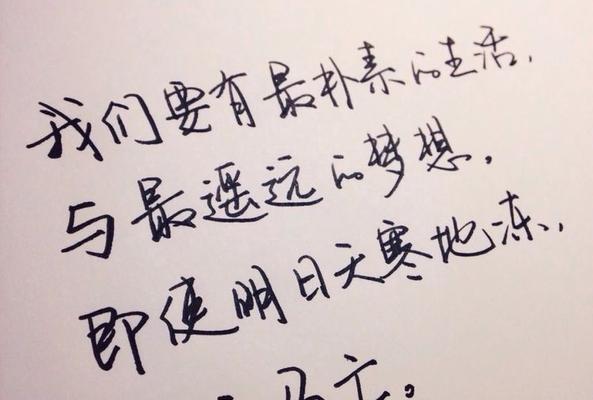 我们要有最朴素的生活，
与最遥远的梦想，
即使明日天寒地冻，
马亡。